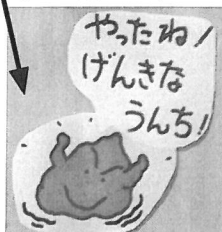 やったね!
げんきな
うんち!